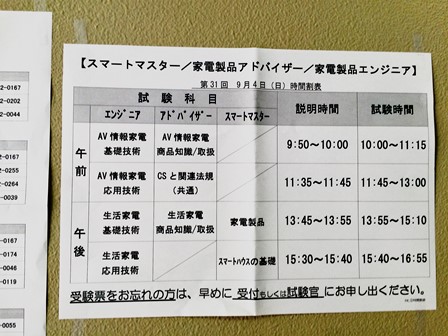 2-0167
2-0202
2-0044
【スマートマスター／家電製品アドバイザー／家電製品エンジニア】
第31回 9月4日（日）時間割表
試験科目 説明時間 試験時間
エンジニア アドバイザー スマートマスター
午前
AV情報家電 基礎技術 AV情報家電 商品知識/取扱 9:50～10:00 10:00～11:15
AV情報家電 応用技術 CSと関連法規（共通） 11:35～11:45 11:45～13:00
午後
生活家電 基礎技術 生活家電 商品知識/取扱 家電製品 13:45～13:55 13:55～15:10
生活家電 応用技術 スマートハウスの基礎 15:30～15:40 15:40～16:55
受験票をお忘れの方は、早めに 受付もしくは試験官 にお申し出ください。
2-0167
2-0255
2-0264
-0039
-0167
-0174
-0046
-0119
-0055